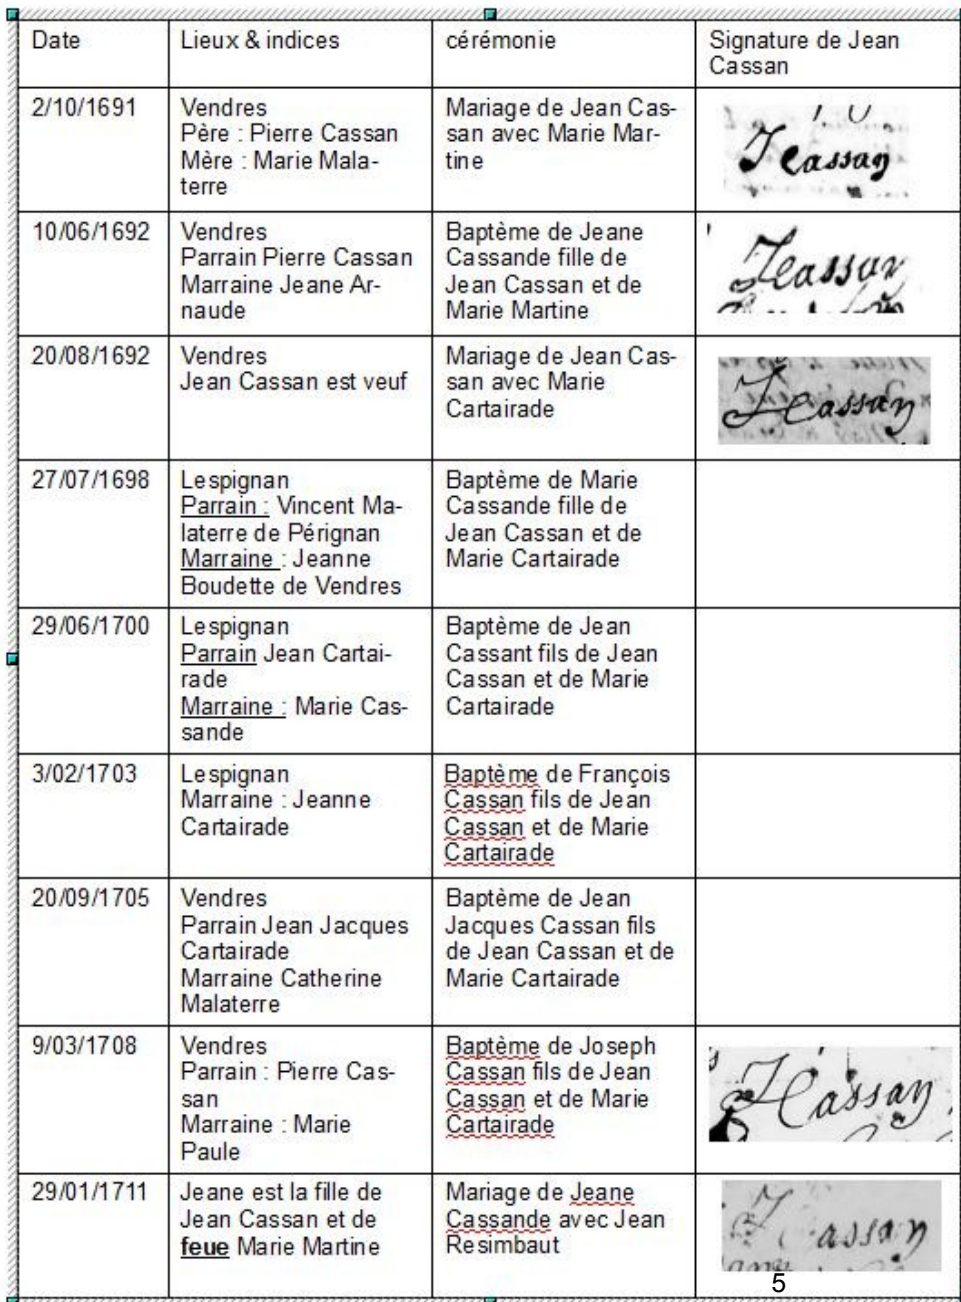 Date
Lieux & indices
cérémonie
Signature de Jean
Cassan
2/10/1691
Vendres
Père : Pierre Cassan
Mère : Marie Mala-
terre
Mariage de Jean Cas-
san avec Marie Mar-
tine
JCassan
10/06/1692
Vendres
Parrain Pierre Cassan
Marraine Jeane Ar-
naude
Baptème de Jeane
Cassande fille de
Jean Cassan et de
Marie Martine
JCassan
20/08/1692
Vendres
Jean Cassan est veuf
Mariage de Jean Cas-
san avec Marie
Cartairade
JCassan
27/07/1698
Lespignan
Parrain : Vincent Ma-
laterre de Pérignan
Marraine : Jeanne
Boudette de Vendres
Baptème de Marie
Cassande fille de
Jean Cassan et de
Marie Cartairade
29/06/1700
Lespignan
Parrain Jean Cartai-
rade
Marraine : Marie Cas-
sande
Baptème de Jean
Cassant fils de Jean
Cassan et de Marie
Cartairade
3/02/1703
Lespignan
Marraine : Jeanne
Cartairade
Baptème de François
Cassan fils de Jean
Cassan et de Marie
Cartairade
20/09/1705
Vendres
Parrain Jean Jacques
Cartairade
Marraine Catherine
Malaterre
Baptème de Jean
Jacques Cassan fils
de Jean Cassan et de
Marie Cartairade
9/03/1708
Vendres
Parrain : Pierre Cas-
san
Marraine : Marie
Paule
Baptème de Joseph
Cassan fils de Jean
Cassan et de Marie
Cartairade
JCassan
29/01/1711
Jeane est la fille de
Jean Cassan et de
feue Marie Martine
Mariage de Jeane
Cassande avec Jean
Resimbaut
JCassan
5